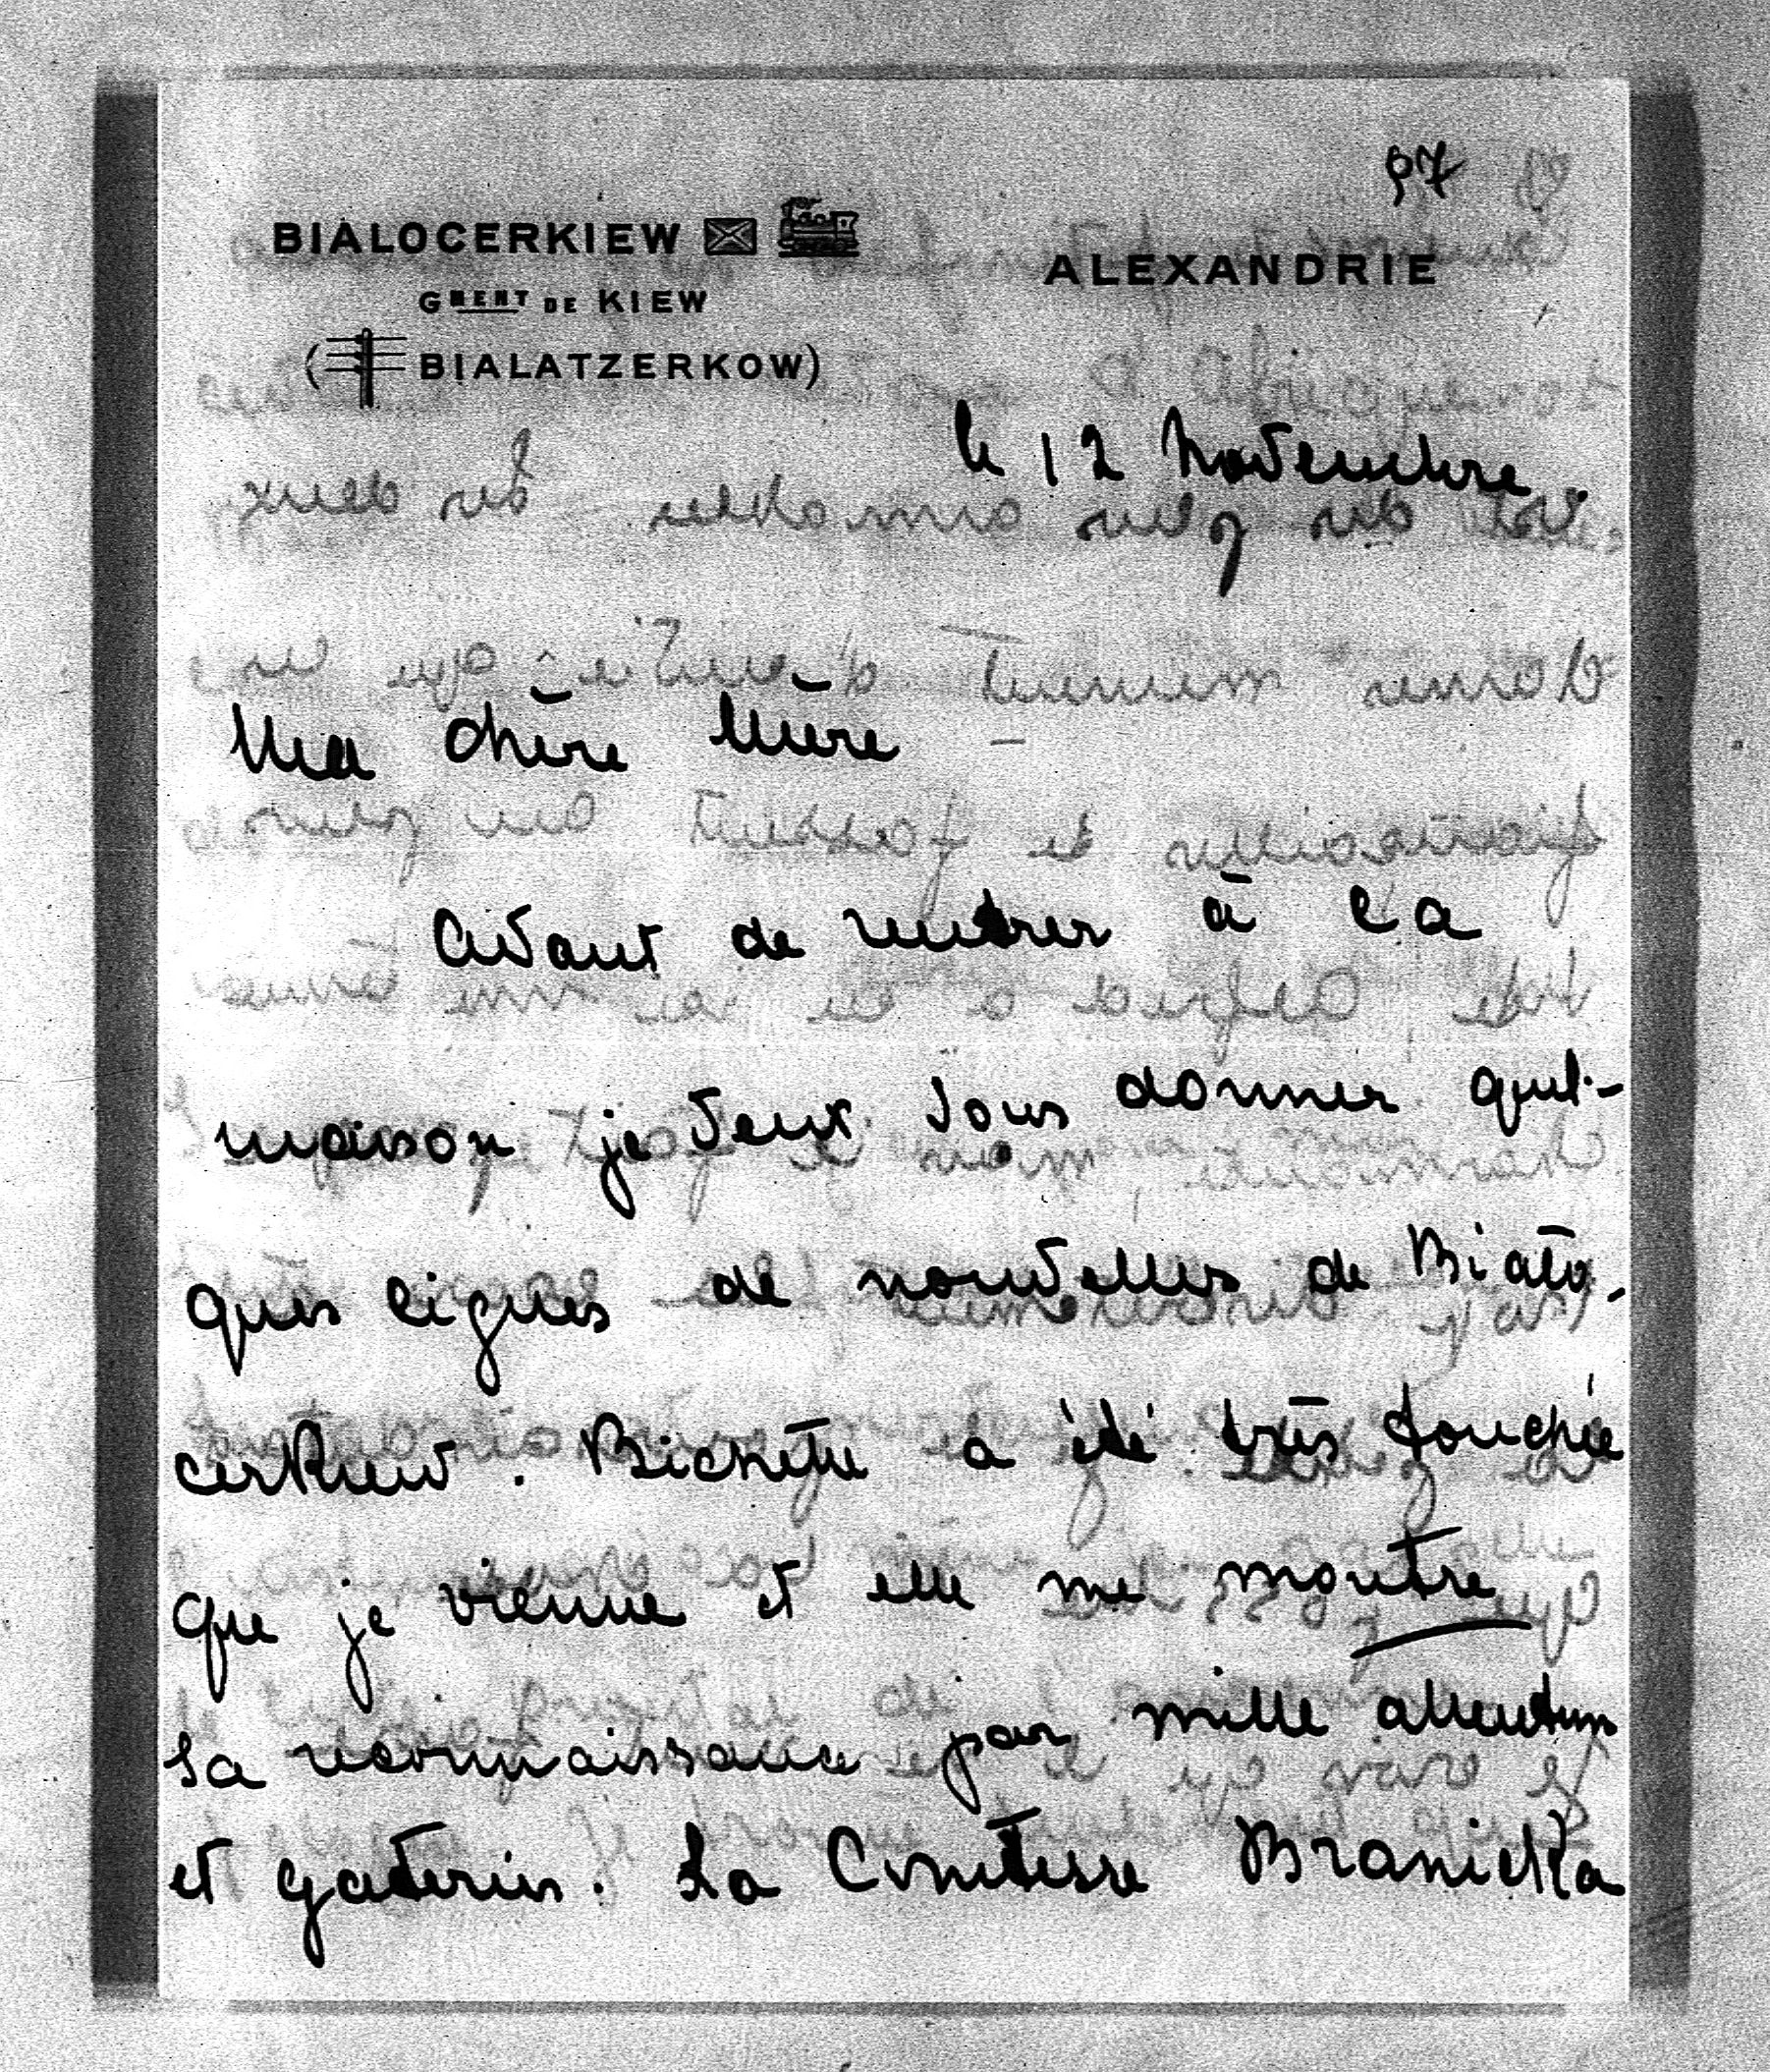 97
BIALOCERKIEW
ALEXANDRIE
GMENT DE KIEW
(BIALATZERKOW)
le 12 Novembre.
Ma chère Mère –
Avant de rentrer à la
maison je veux vous donner quel-
ques lignes de nouvelles de Biało-
cerkiew. Bichette a été très touchée
que je vienne et elle me montre
sa reconnaissance par mille attentions
et gateries. La Comtesse Branicka